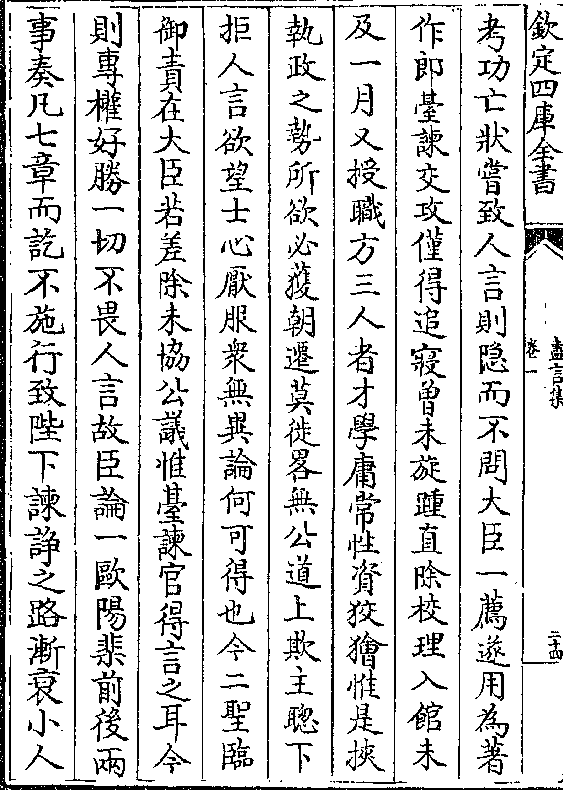 欽定四庫全書
盡言集
卷一
二十四
考功亡狀嘗致人言則隐而不問大臣一薦遂用為著
作郎臺諫交攻僅得追寢曾未旋踵直除校理入館未
及一月又授職方三人者才學庸常性資狡獪惟是挾
執政之勢所欲必獲朝遷莫徙畧無公道上欺主聰下
拒人言欲望士心厭服衆無異論何可得也今二聖臨
御責在大臣若差除未協公議惟臺諫官得言之耳今
則專權好勝一切不畏人言故臣論一歐陽棐前後兩
事奏凡七章而訖不施行致陛下諫諍之路漸衰小人